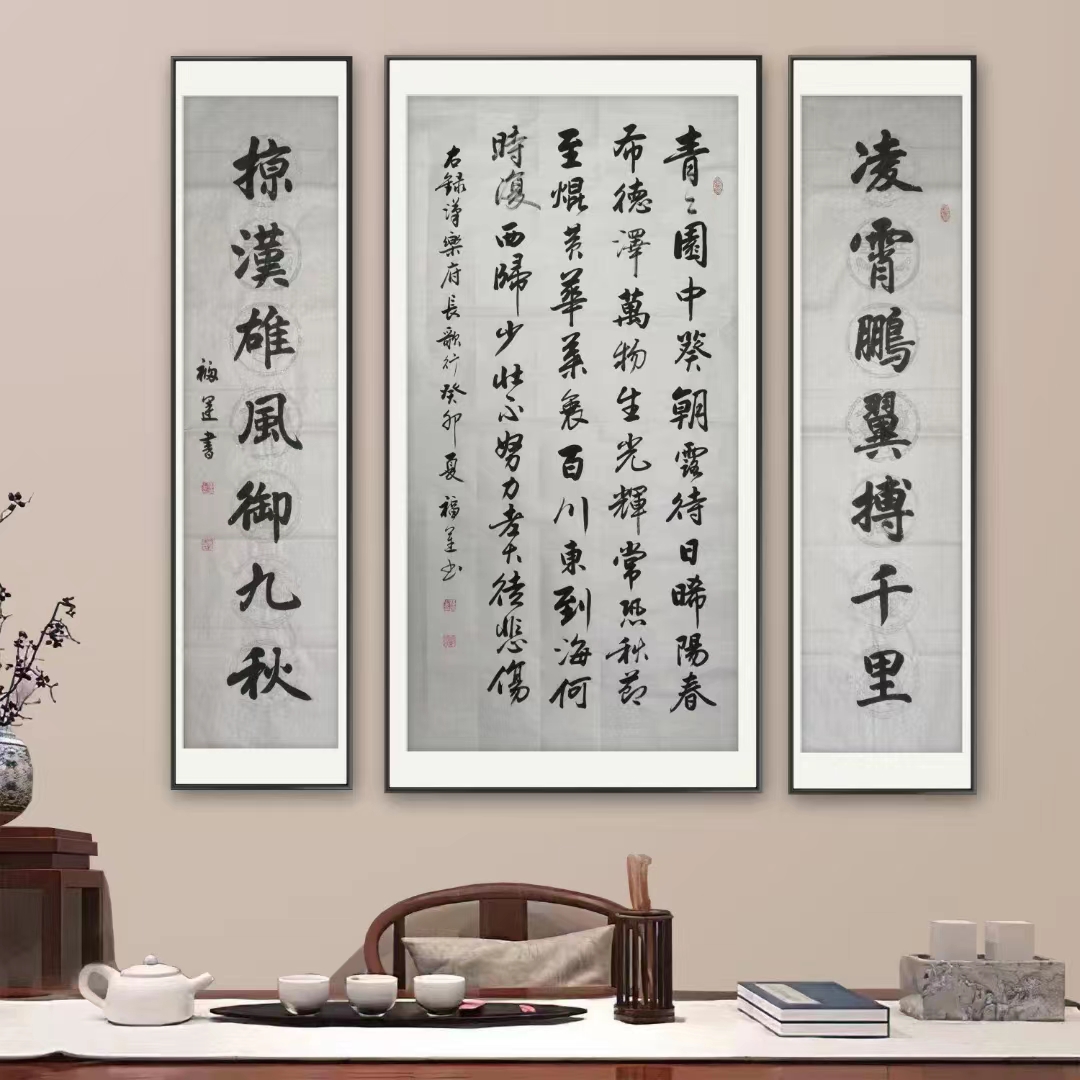 凌霄鵬翼搏千里
青〻園中葵朝露待日晞陽春
布德澤萬物生光輝常恐秋節
至焜黃華葉衰百川東到海何
時復西歸少壯不努力老大徒悲傷
右録漢樂府長歌行癸卯夏福運书
掠漢雄風御九秋
福運書